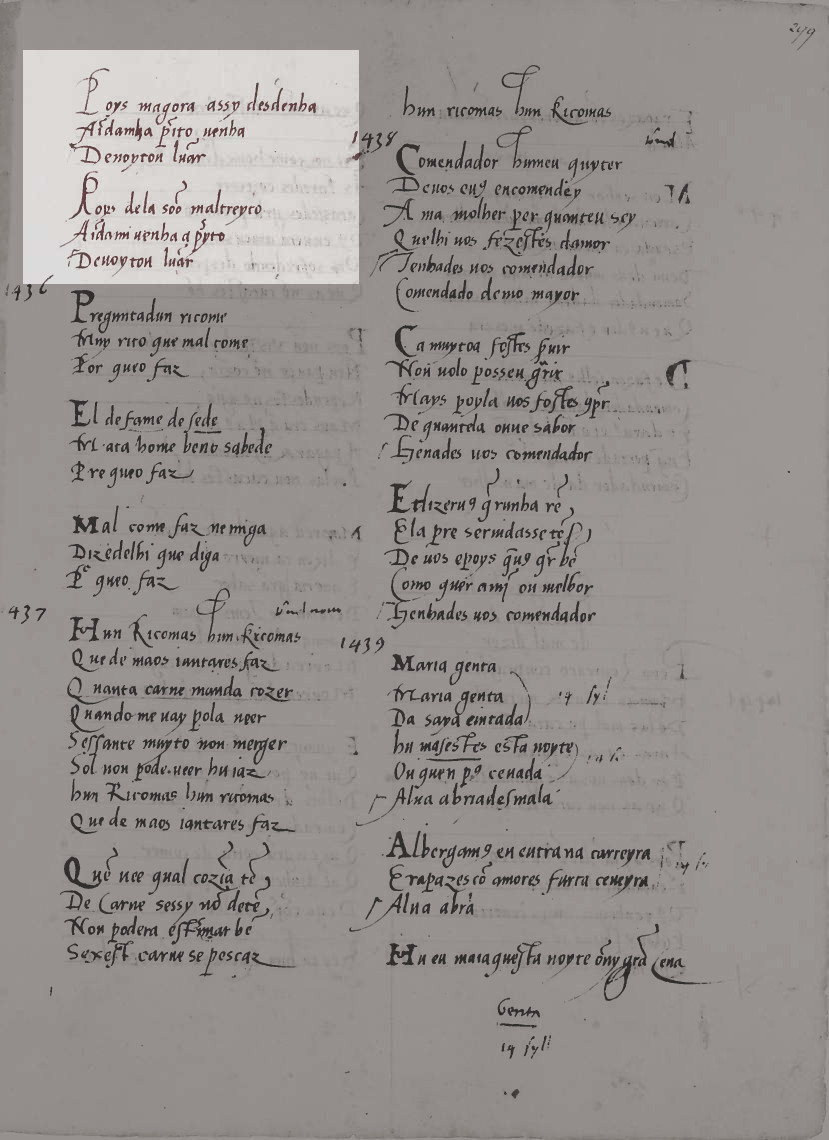 299
Poys magora assy desdenha
Aīdamha p̄ito uenha
Denoyton luār
Poys dela soō maltreyto
Aīdami uenha a p̄yto
Denoyton luār
1436
Preguntadun ricome
Muy rico que mal come
Por queo faz
El de fame de sede
Mata home beno sabede
Pre queo faz
Mal come faz nemiga
Dizedelhi que diga
queo faz
1437
Hun Ricomas hun Ricomas
Que de maos iantares faz
Quanta carne manda cozer
Quando me uay pola ueer
Sessante muyto non merger
Sol non pode ueer hu iaz
hun Ricomas hun ricomas
Que de maos iantares faz
Quē uee qual cozīa tē
De Carne sessy nō detē
Non podera estimar bē
Sexest carne se pescaz
hun ricomas hun Ricomas
1438
Comendador hu meu quyter
De uos eu9 encomendey
A ma molher per quanteu sey
Quelhi uos fezestes damor
Tenhades uos comendador
Comendado demo mayor
Ca muytoa fostes s̄uir
Non uolo posseu
Mays poyla uos fostes
De quantela ouue sabor
Tenhades uos comendador
E direru9 rē
Ela pre seruidassetē
De uos epoys bē
Como quer ou melhor
Tenhades uos comendador
1439
Maria genta
Maria genta
Da saya cintada
14 syl
hu masestes esta noyte
Ou quen p9 ceuada
Alua abriadesmala
Albergam9 en eutrana carreyra
Erapazes cō amores furta ceueyra
Alua abra
Hu eu maiaquesta noyte ouuy grā cena
Genta
14 syll